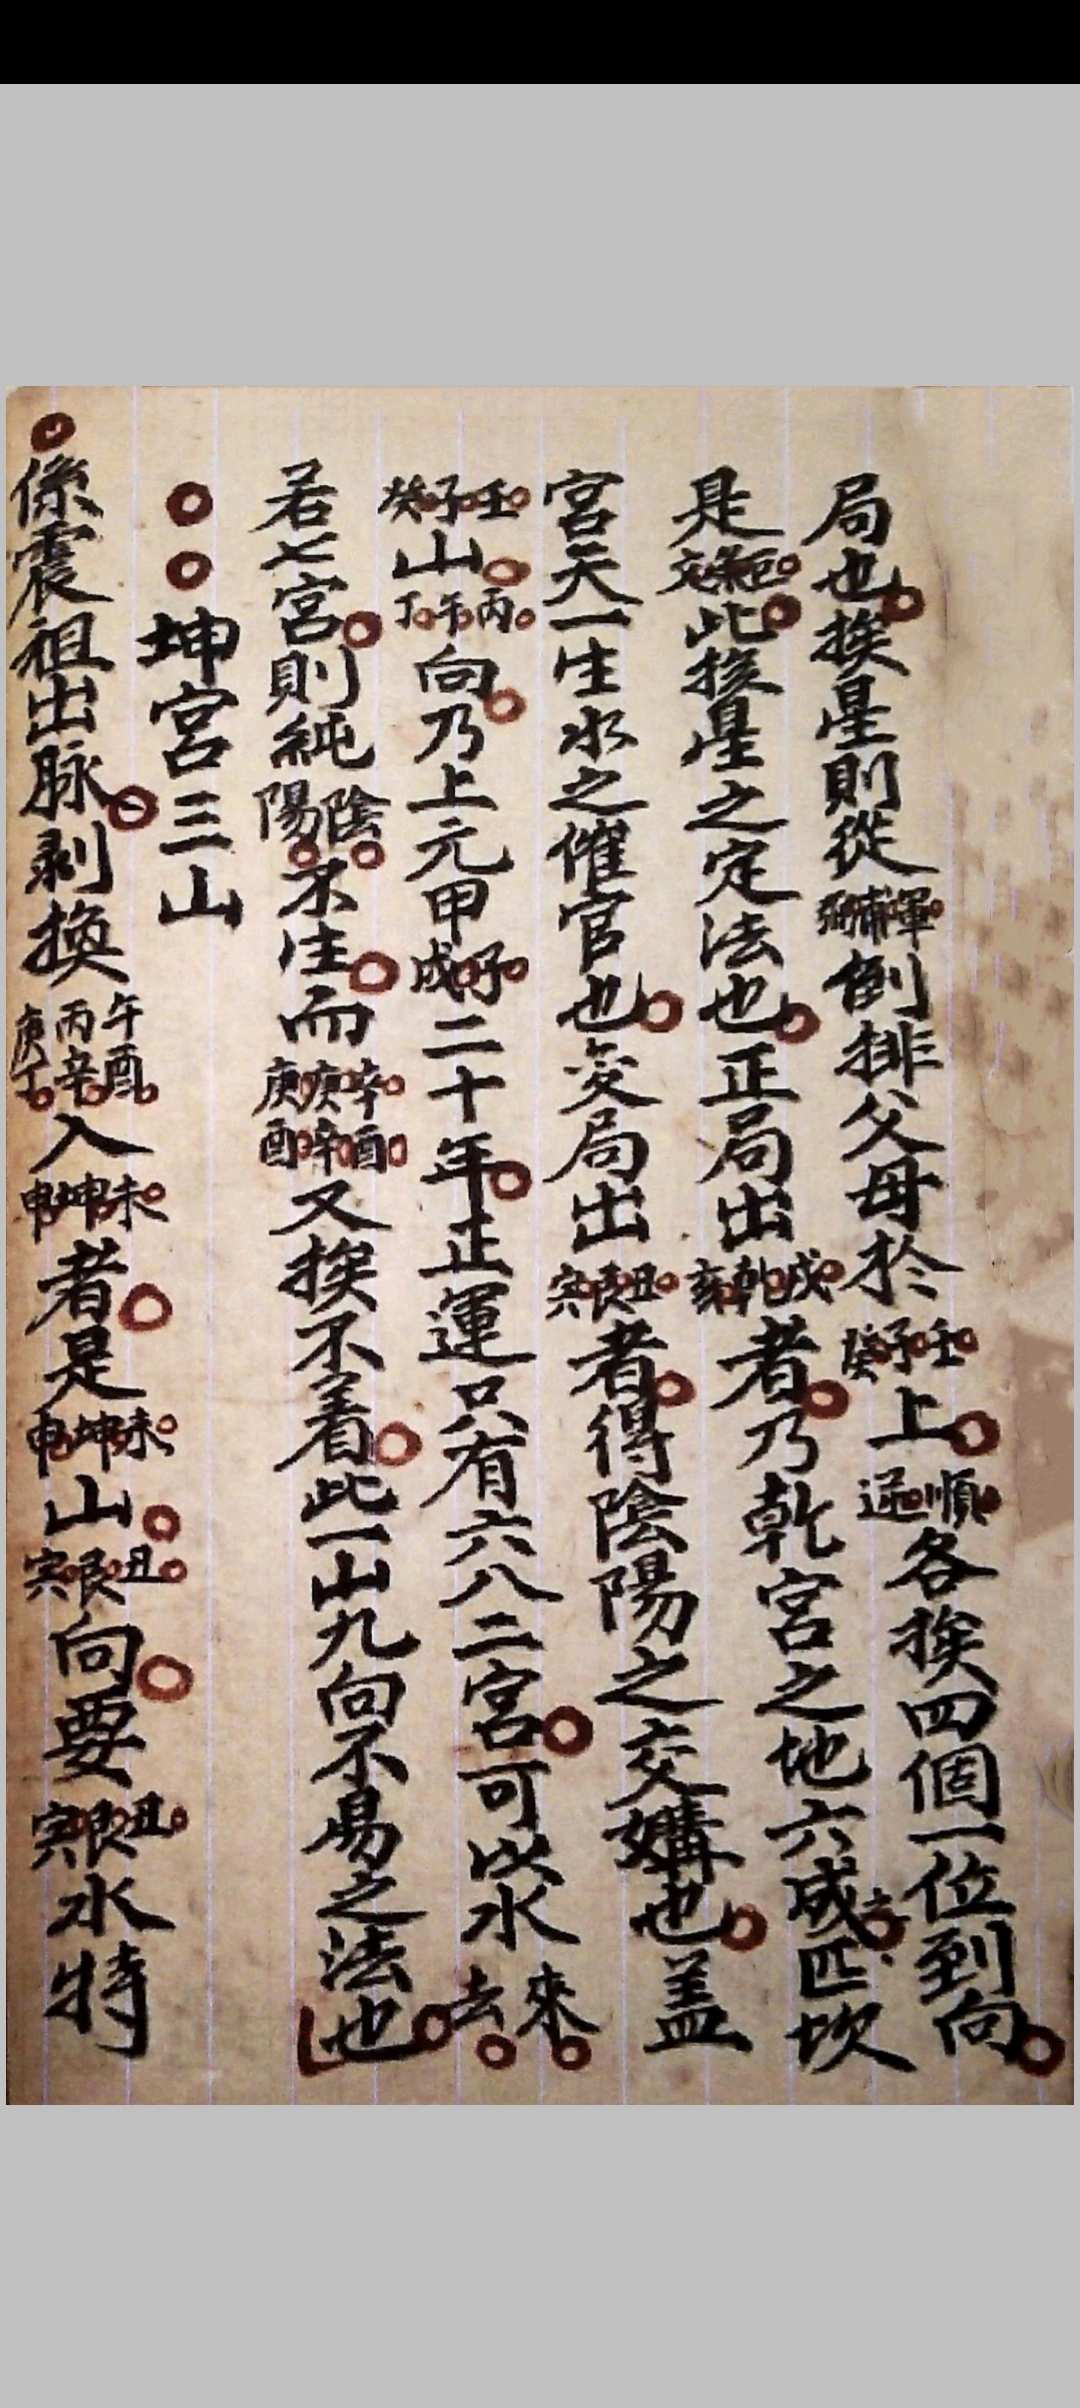 局也挨星則從軍輔弼倒排父母於壬子癸上順逆各挨四個一位到向
是巨祿文此挨星之定法也正局出戌乾亥者乃乾宮之地六成匹坎
宮天一生水之催官也变局出丑艮寅者得陰陽之交媾也盖
壬子癸山丙午丁向乃上元甲子戌二十年正運只有六八二宮可以水來去
若七宮則純陰陽不住而辛庚庚酉辛酉又挨不着此一山九向不易之法也
坤宮三山
係震祖出脉剥換午酉丙辛庚丁入未坤申者是未坤申山丑艮寅向要丑艮寅水特